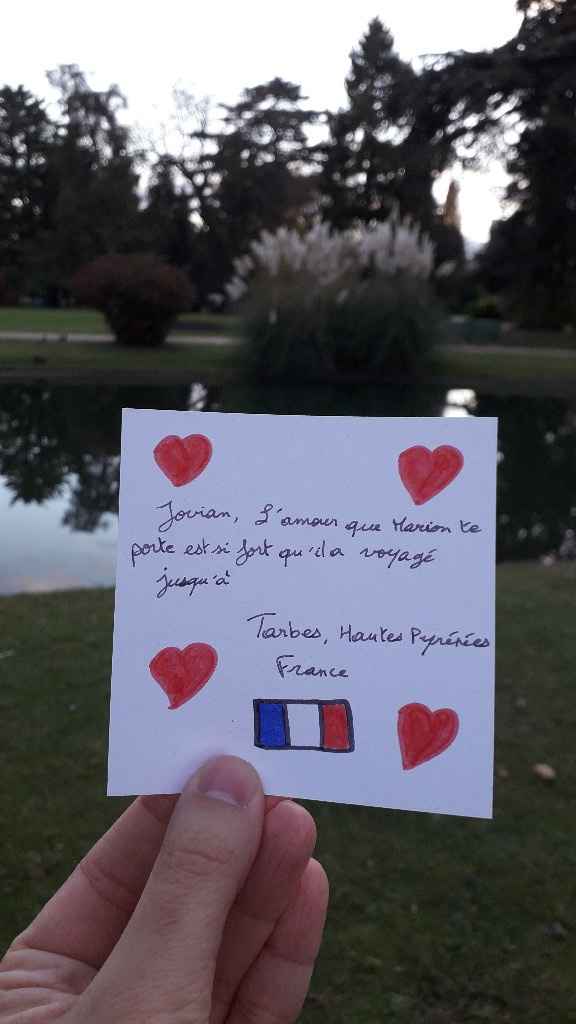 Jovian, L'amour que Marion te
porte est si fort qu'il a voyagé
jusqu'à
Tarbes, Hautes Pyrénées
France